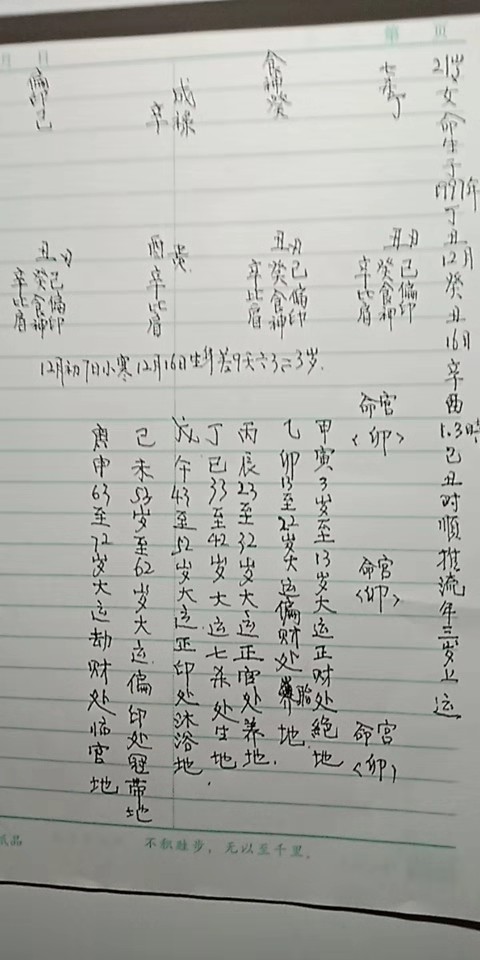 月 日
第 页
21岁女命生于1997年丁丑12月癸丑16日辛酉1.3時己丑时順推流年三岁上运
七杀丁
食神癸
成禄
辛
偏印己
丑
己偏印
癸食神
辛比肩
丑
己偏印
癸食神
辛比肩
酉
辛比肩
丑
己偏印
癸食神
辛比肩
12月初7日小寒12月16日生
命宫
<卯>
命宫
<卯>
命宫
<卯>
甲寅3岁至13岁大运正财处絕地
乙卯13至22岁大运偏财处胎地.
丙辰23至32岁大运正官处养地.
丁巳33至42岁大运七杀处生地.
戊午43至52岁大运正印处沐浴地
己未53岁至62岁大运偏印处冠带地
庚申63至72岁大运劫财处临官地
纸品
不积跬步,无以至千里.